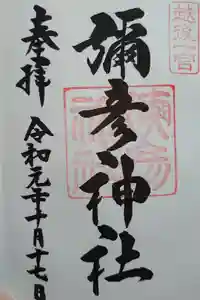 奉拝
越後一宮
彌彦神社
令和元年十月十七日